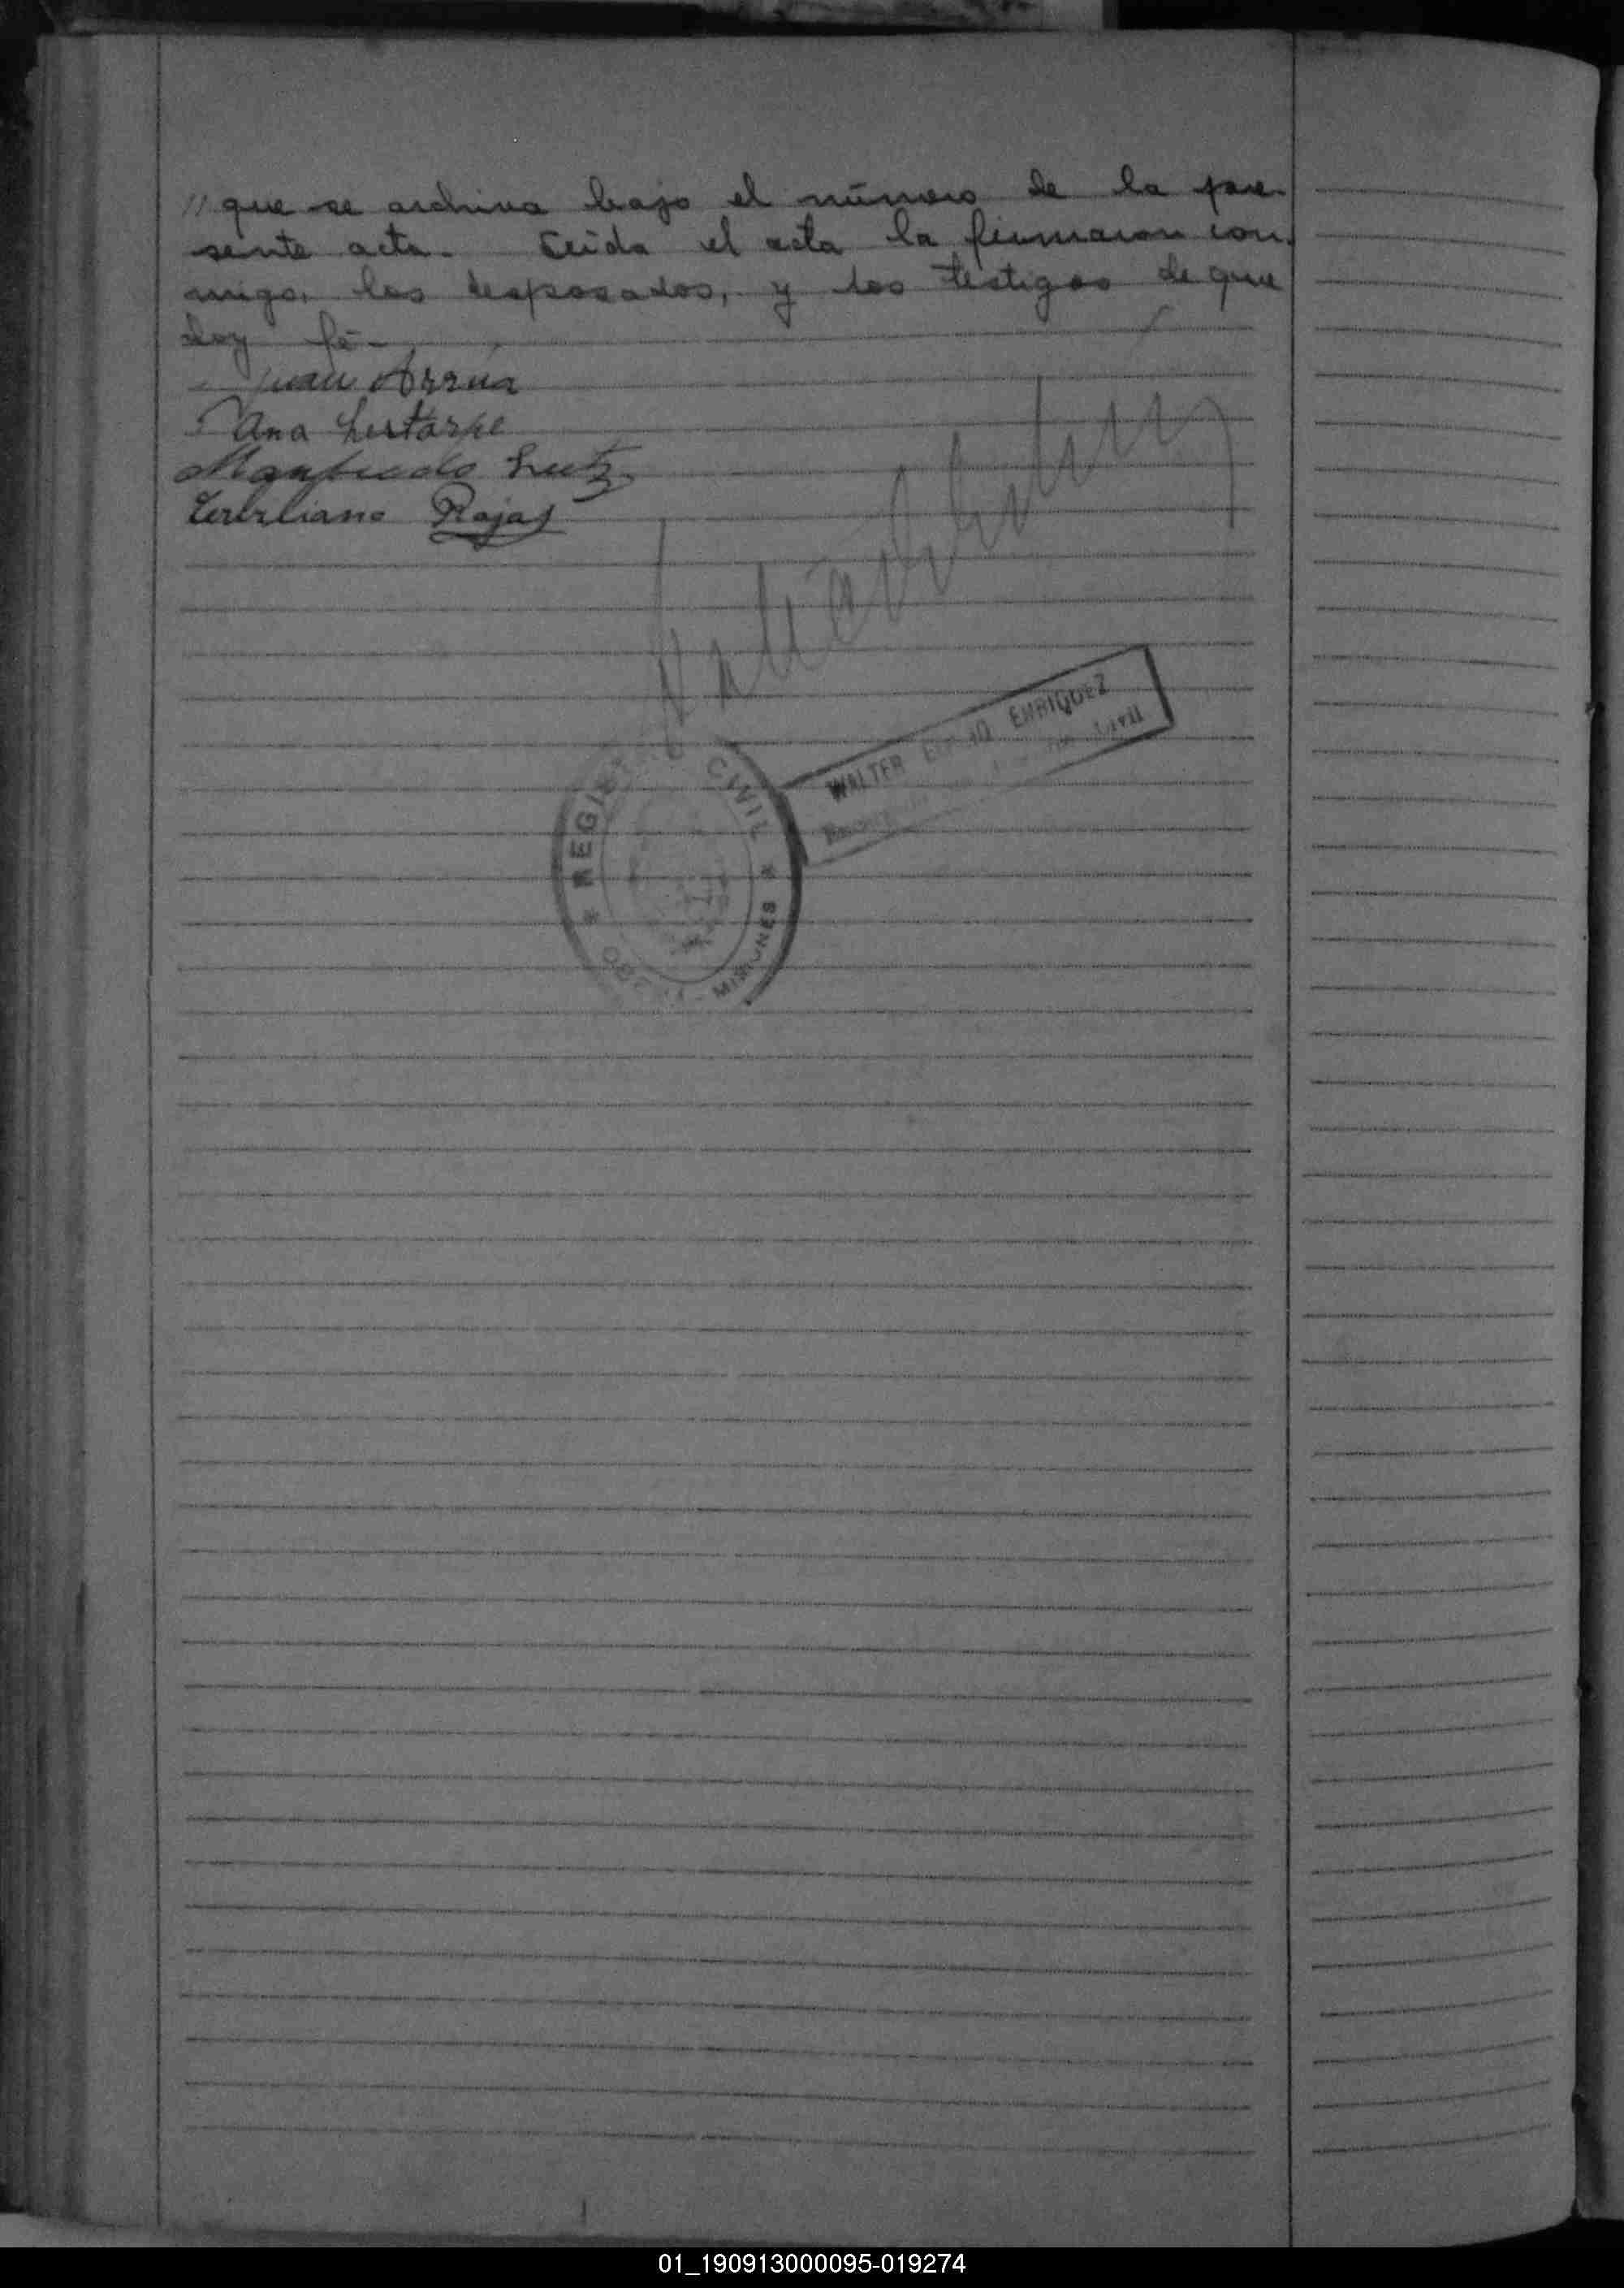 // que se archiva bajo el número de la pre-
sente acta. Leida el acta la firmaron con-
migo, los desposados, y los testigos de que
doy fé-
Juan Arrúa
Ana
Manfredo Lutz
Tertuliano Rojas
WALTER ENRIQUEZ
Civil
REGISTRO CIVIL
* OBERA - MISIONES *
01_190913000095-019274